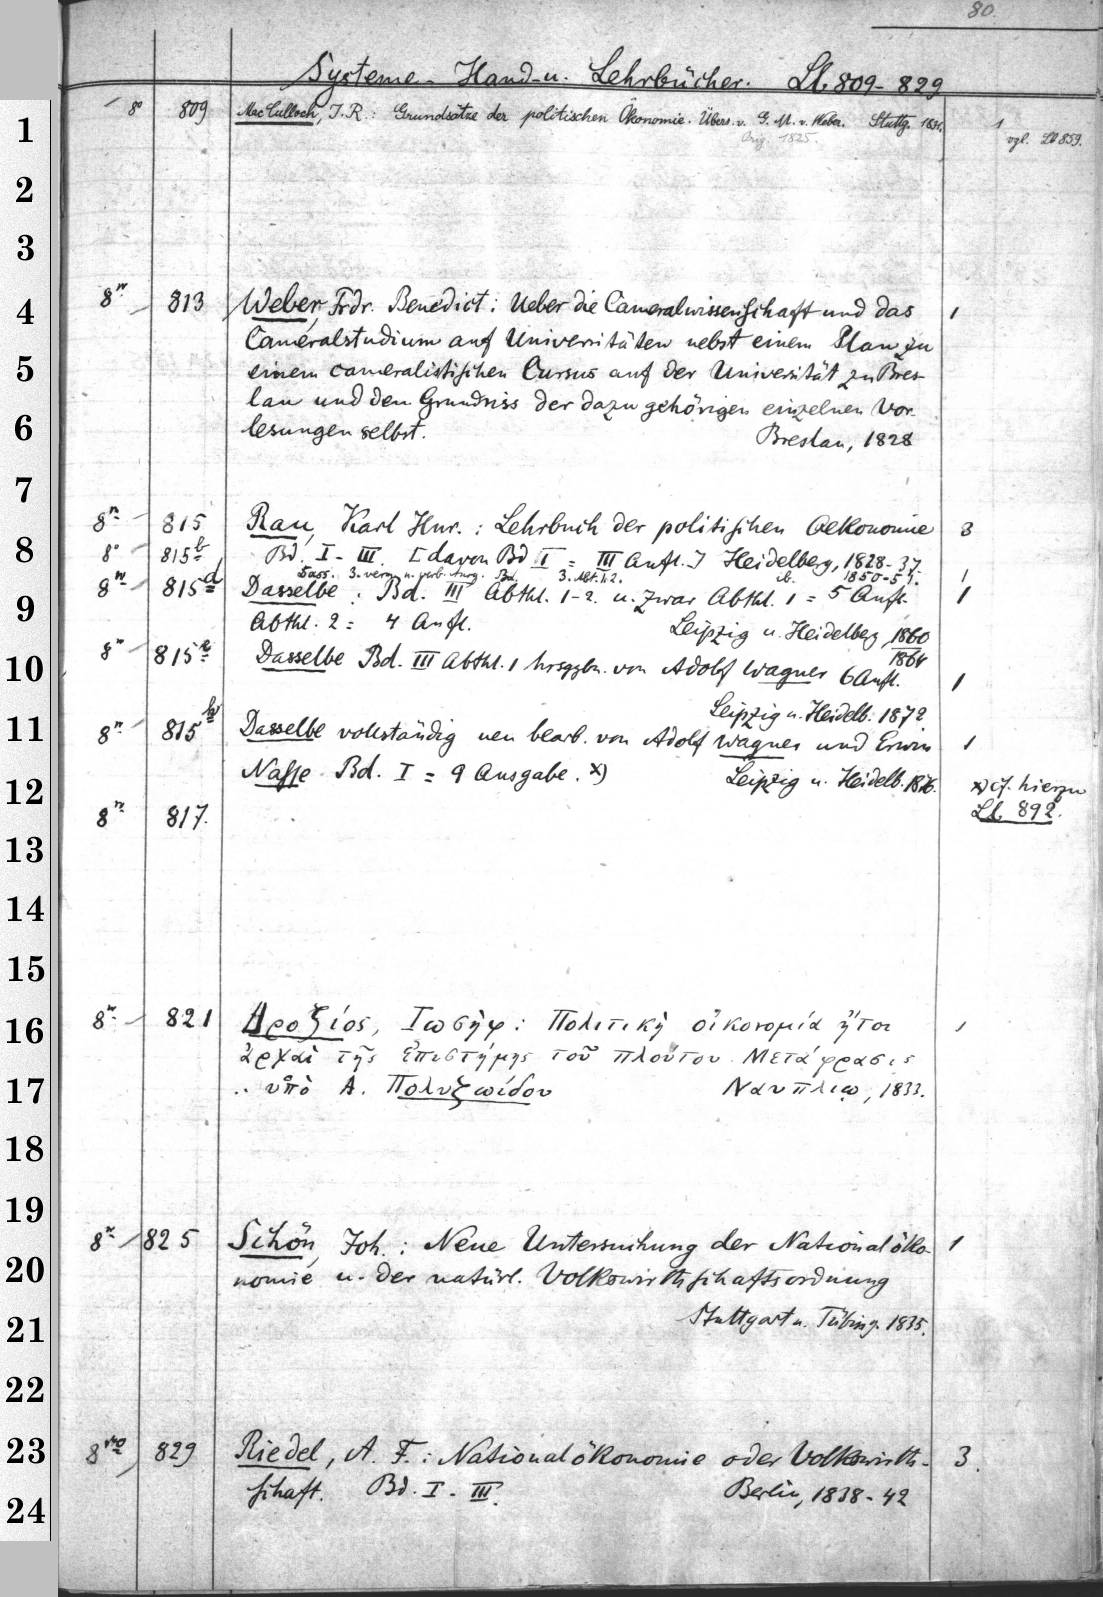 80.
Systeme- Hand- u. Lehrbücher. Ll. 809-829
8° 809 MacCulloch, J. R.: Grundsätze der politischen Ökonomie. Übers. v. G. M. v. Weber. Stuttg. 1831. 1
Orig. 1825. vgl. Ll 859.
1
2
3
4 8° 813 Weber, Frdr. Benedict: Ueber die Cameralwissenschaft und das 1
Cameralstudium auf Universitäten nebst einem Plan zu
5 einem cameralistischen Cursus auf der Universität zu Bres-
lau und den Grundriss der dazu gehörigen einzelnen Vor-
6 lesungen selbst. Breslau, 1828
7
8n 815 Rau, Karl Hnr.: Lehrbuch der politischen Oekonomie 3
8 8° 815b Bd. I-III. [davon Bd I = III Aufl.] Heidelberg, 1828-37.
Dass. 3. verm. u. verb. Ausg. Bd. 3. Abt. 1.2. ib. 1850-51. 1
9 8n 815d Dasselbe: Bd. III Abthl. 1-2. u. zwar Abthl. 1 = 5 Aufl. 1
Abthl. 2 = 4 Aufl. Leipzig u. Heidelberg 1860
1864
10 8n 815e Dasselbe Bd. III Abthl. 1 hrsggbn. von Adolf Wagner 6 Aufl. 1
Leipzig u. Heidelb. 1872
11 8n 815h Dasselbe vollständig neu bearb. von Adolf Wagner und Erwin 1
12 Nasse Bd. I = 9 Ausgabe. x) Leipzig u. Heidelb. 1876. x) cf. hierzu
8n 817. Ll. 892.
13
14
15
16 8n 821 Δροζίος, Ἰωσήφ: Πολιτική οἰκονομία ἤτοι 1
ἀρχαὶ τῆς ἐπιστήμης τοῦ πλούτου. Μετάφρασις
17 .. ὑπὸ Α. Πολυζωίδου Ναυπλιῳ, 1833.
18
19
8n 825 Schön, Joh.: Neue Untersuchung der Nationalöko- 1
20 nomie u. der natürl. Volkswirthschaftsordnung
21 Stuttgart u. Tübing. 1835.
22
23 8vo 829 Riedel, A. F.: Nationalökonomie oder Volkswirth- 3.
24 schaft. Bd. I-III. Berlin, 1838-42